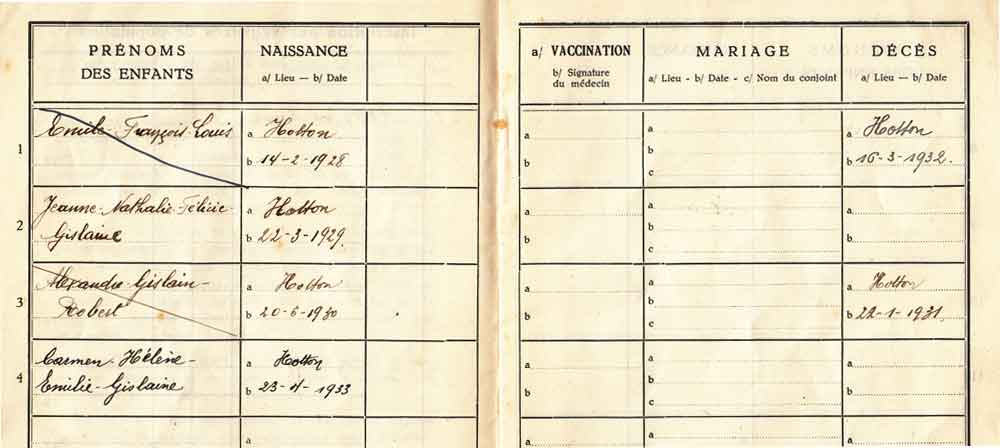 PRÉNOMS
DES ENFANTS
NAISSANCE
a/ Lieu — b/ Date
a/ VACCINATION
b/ Signature
du médecin
MARIAGE
a/ Lieu - b/ Date - c/ Nom du conjoint
DÉCÈS
a/ Lieu — b/ Date
1
Emile François Louis
a Hotton
b 14-2-1928
a
b
a
b
c
a Hotton
b 16-3-1932.
2
Jeanne-Nathalie-Félicie-
Gislaine
a Hotton
b 22-3-1929.
a
b
a
b
c
a
b
3
Alexandre-Gislain-
Robert
a Hotton
b 20-6-1930
a
b
a
b
c
a Hotton
b 22-1-1931.
4
Carmen-Hélène-
Emilie-Gislaine
a Hotton
b 23-4-1933
a
b
a
b
c
a
b
a
a
a
a